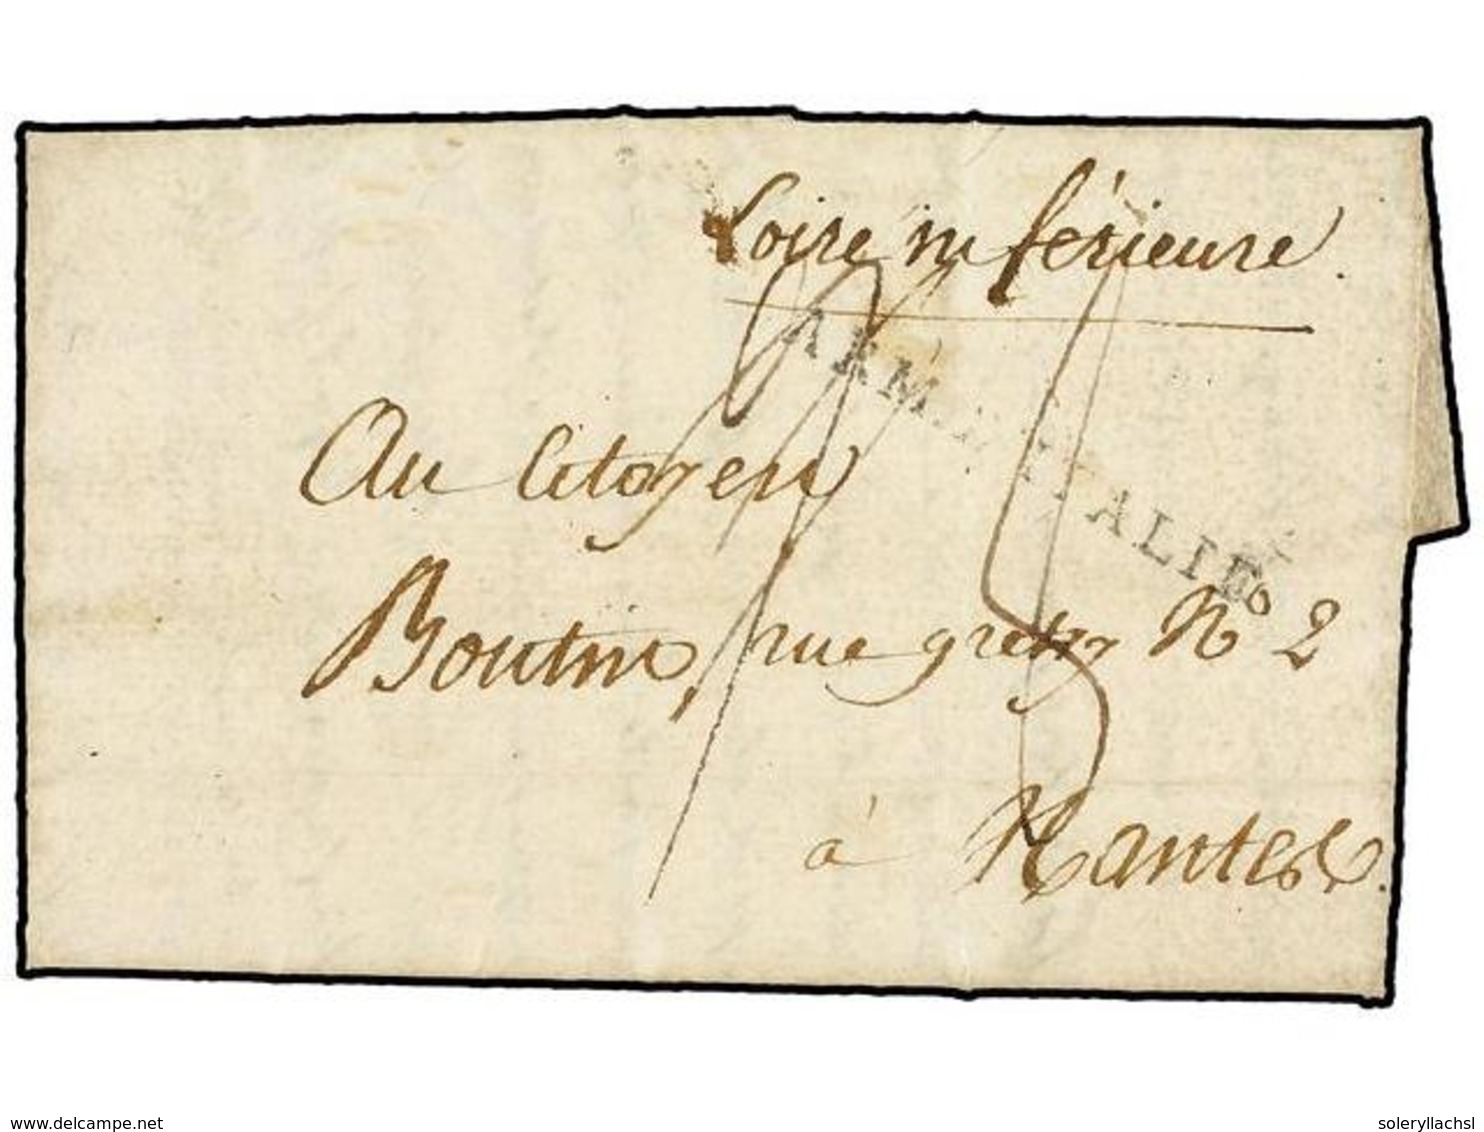 Loire inférieure.
ARM. D'ITALIE
Au Citoyen
Boutin, rue gretry No 2
à Nantes.
delcampe.net
soleryllachsl